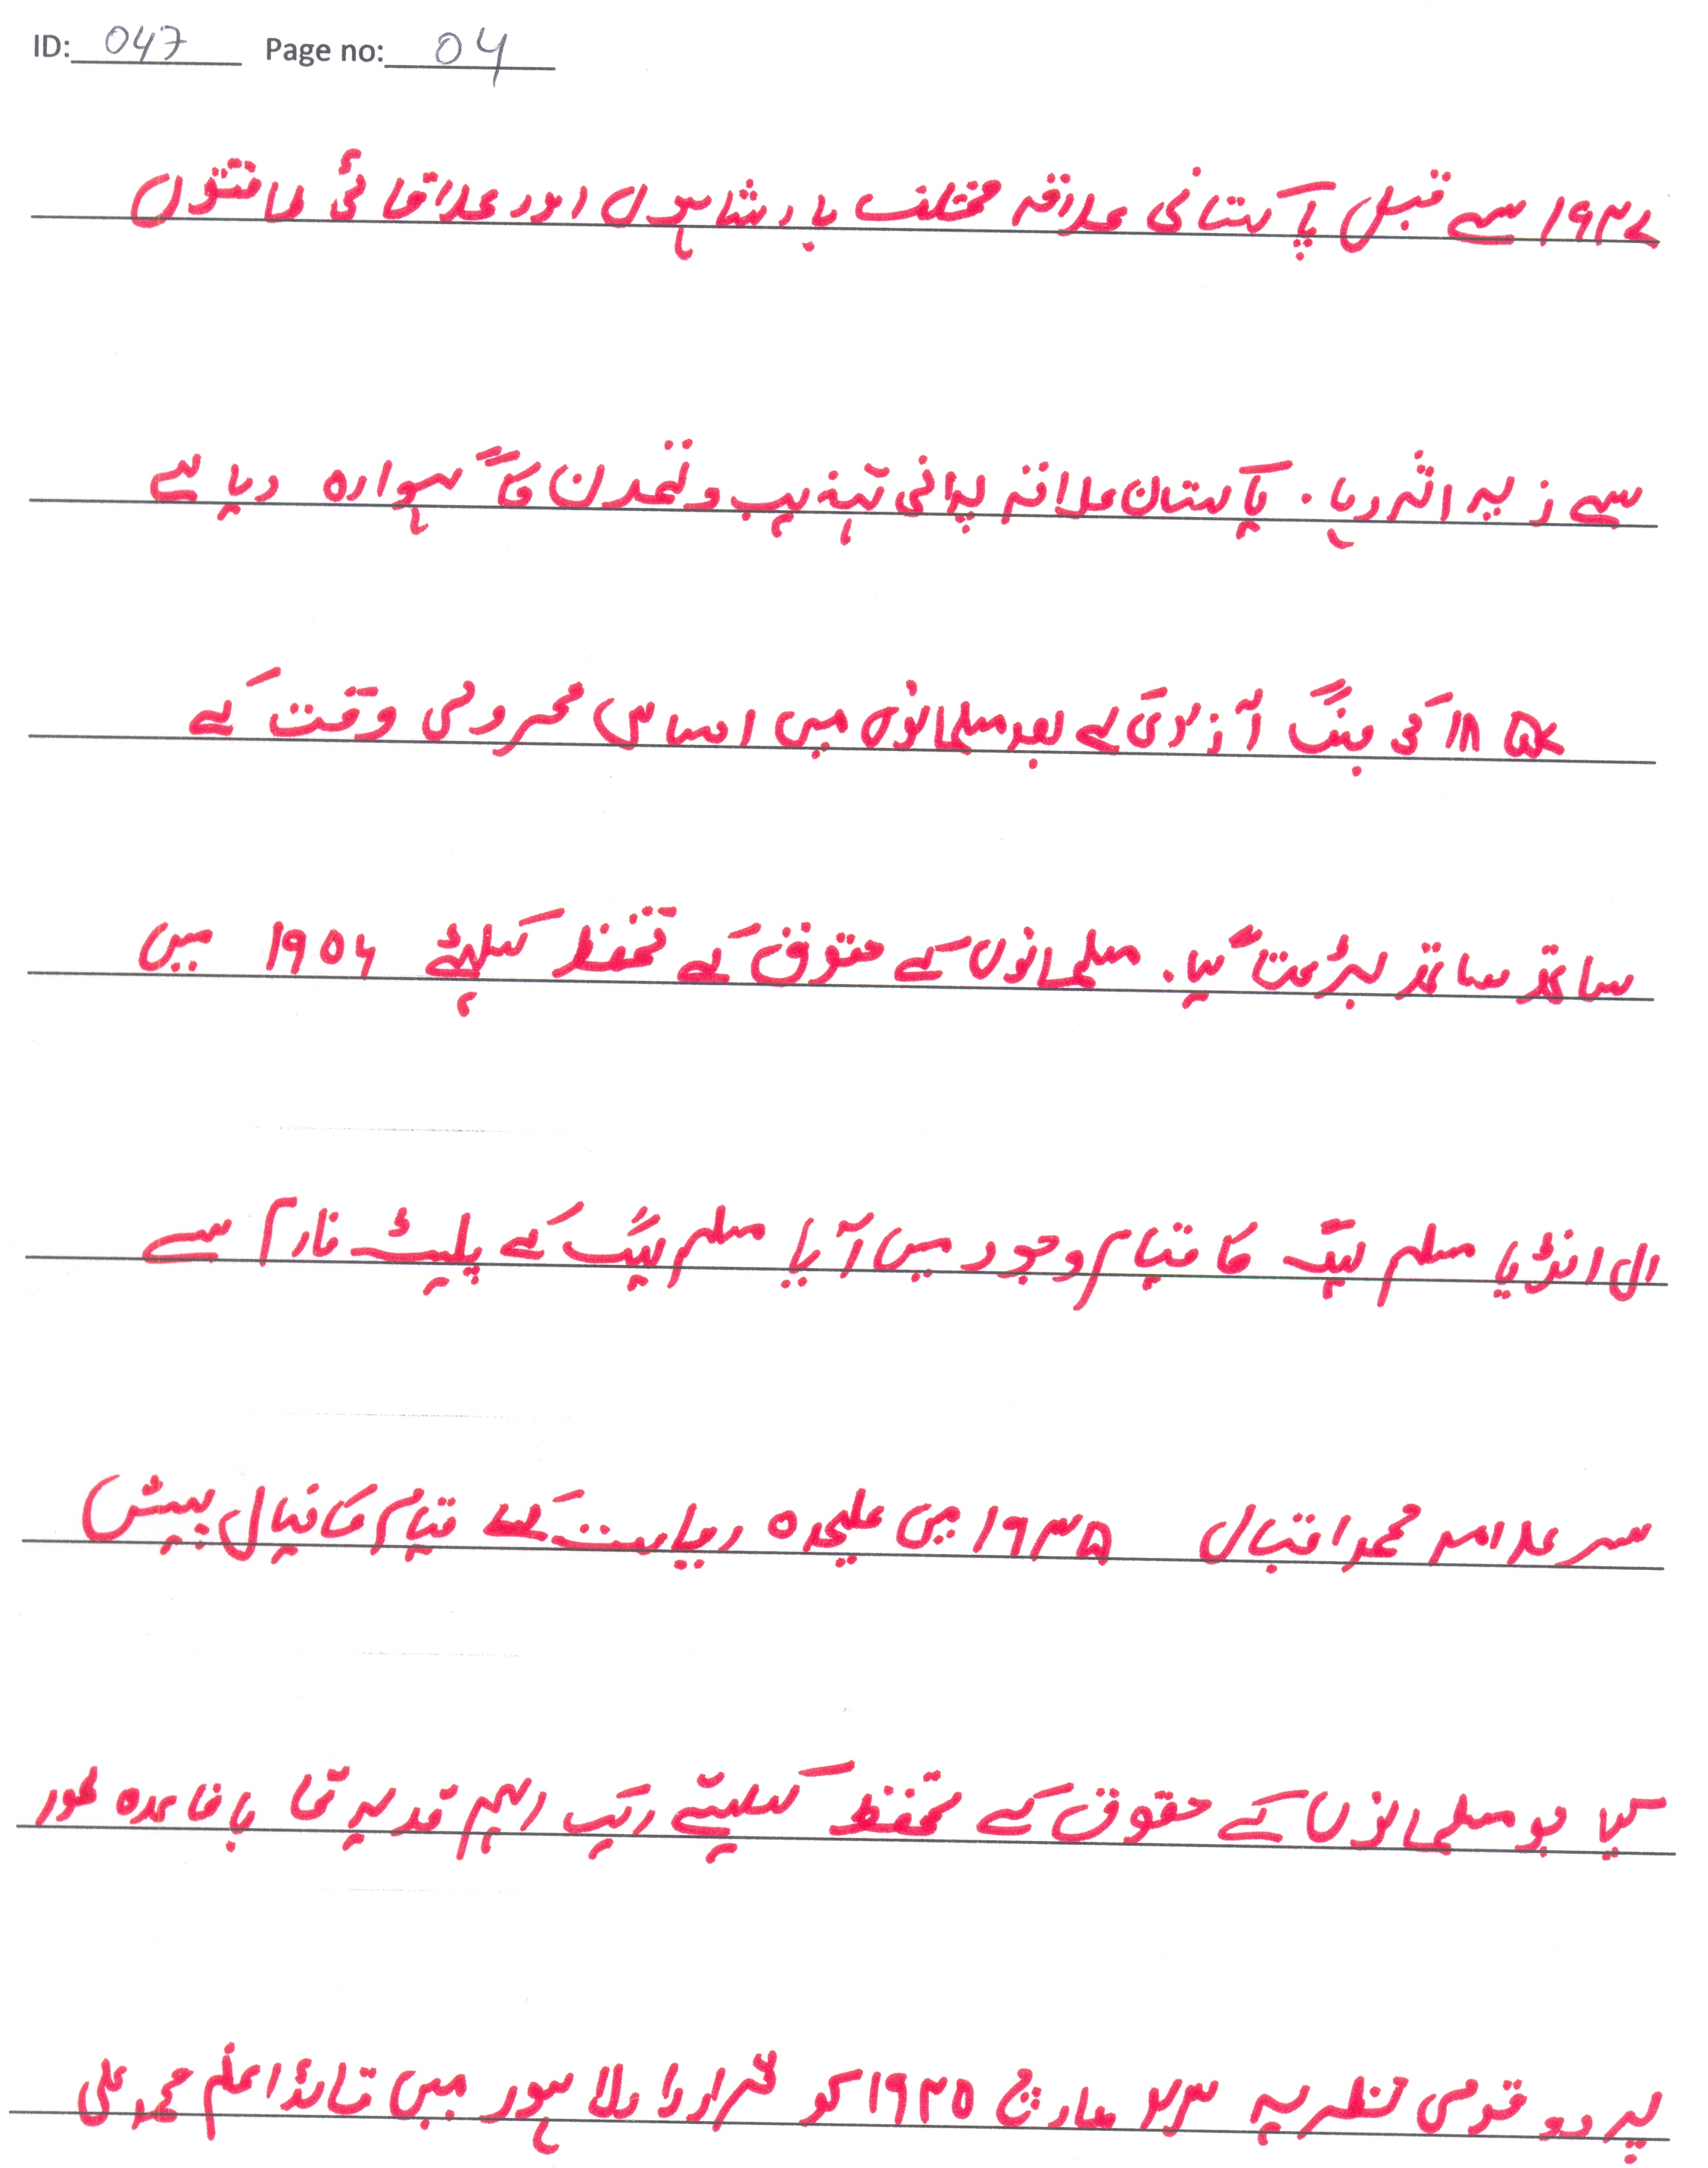 ID: 047 Page no: 04
۱۹۴۷ سے قبل پاکستانی علاقہ مختلف بادشاہوں اور علاقائی طاقتوں
سے زیر اثر رہا۔ پاکستان علاقہ پرانی تہذیب و تمدن کا گہوارہ رہا ہے
۱۸۵۷ کی جنگ آزادی کے بعد مسلمانوں میں احساس محرومی وقت کے
ساتھ ساتھ بڑھتا گیا۔ مسلمانوں کے حقوق کے تحفظ کیلئے ۱۹۰۶ میں
ال انڈیا مسلم لیگ کا قیام وجود میں آیا مسلم لیگ کے پلیٹ فارم سے
سر علامہ محمد اقبال ۱۹۳۵ میں علیحدہ ریاست کے قیام کا خیال پیش
کیا جو مسلمانوں کے حقوق کے تحفظ کیلئے ایک اہم قدم تھا باقاعدہ طور
پر دو قومی نظریہ ۲۳ مارچ ۱۹۴۰ کو قرارداد لاہور میں قائداعظم محمد علی